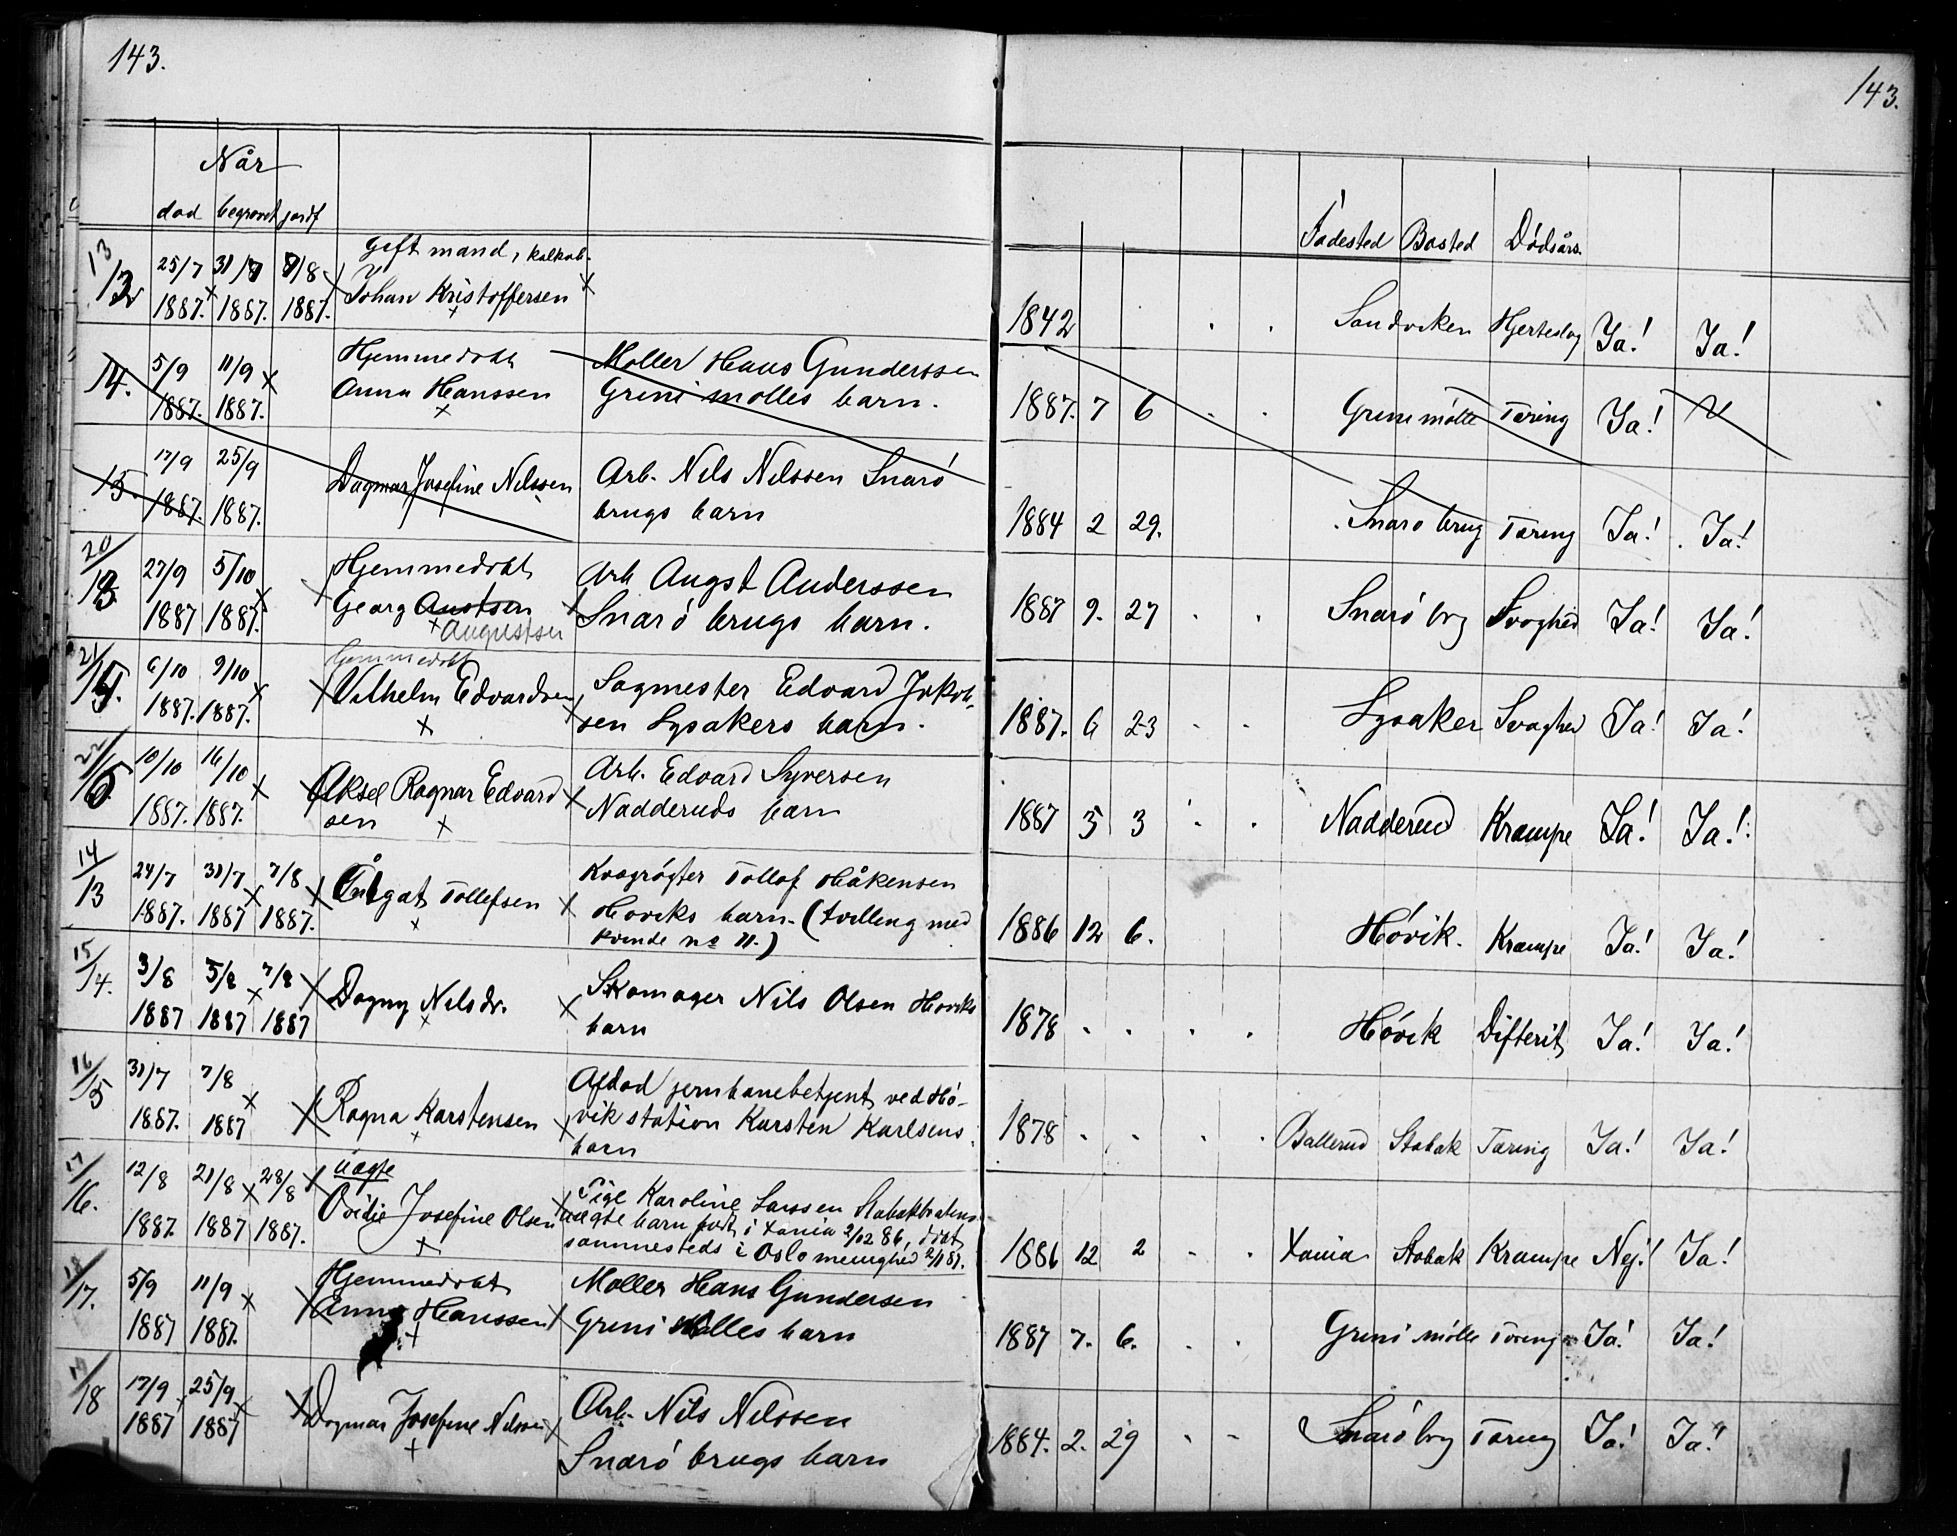 143. 143.
Når
død begravet jordf Fødested Bosted Dødsårs.
Gift mand, kalkab.
13/12 25/7 31/7 7/8
1887. 1887. 1887. Johan Kristoffersen 1842 . . Sandviken Hjerteslag Ja! Ja!
Hjemmedøbt Møller Hans Gunderssen
14. 5/9 11/9
1887. 1887. Anna Hanssen Greni mølles barn. 1887. 7 6 . . Greni mølle Tæring Ja!
15. 17/9 25/9 Dagmar Josefine Nilssen Arb. Nils Nilssen Snarø
1887. 1887. brugs barn 1884 2 29. Snarø brug Tæring Ja! Ja!
20/ 27/9 5/10 Hjemmedøbt Arb Augst Anderssen
1887 1887. Georg Austsen Snarø brugs barn. 1887 9. 27 . . Snarø brg Svaghed Ja! Ja!
Augustsen
21/ 6/10 9/10 hjemmedøbt
1887. 1887. Vilhelm Edvardsen Sagmester Edvard Jakob-
sen Lysakers barn. 1887. 6 23 . . Lysaker Svaghed Ja! Ja!
22/ 10/10 16/10 Arb. Edvard Syversen
1887. 1887. Aksel Ragnar Edvard Nadderuds barn 1887 5 3 . . Nadderud Krampe Ja! Ja!
sen
14/13 24/7 31/7 7/8 Kvægrøgter Tollof Håkensen
1887. 1887 1887. Tollefsen Høviks barn. (tvilling med 1886 12 6. Høvik. Krampe Ja! Ja!
kvinde no 11.)
15/14. 3/8 5/8 7/8 Dagny Nilsdr. Skomager Nils Olsen Høviks
1887 1887 1887 barn 1878 . . . . Høvik Difterit Ja! Ja!
16/15 31/7 7/8 Afdød jernbanebetjent ved Hø-
1887. 1887 Ragna Karstensen vik station Karsten Karlsens 1878 . . . . Ballerud Stabæk Tæring Ja! Ja!
barn
17/16. 12/8 21/8 28/8 uægte Pige Karoline Larssen Stabækbråtens
1887. 1887 1887. Ovidie Josefine Olsen uægte barn født i Xania 2/12 86, døbt
sammesteds i Oslo menighed 2/1 87. 1886 12 2 . . Xania Stabæk Krampe Nej! Ja!
18/17. 5/9 11/9 Hjemmedøbt Møller Hans Gundersen
1887 1887. Anna Hanssen Greni Mølles barn 1887 7. 6. . . Greni mølle Tæring Ja! Ja!
19/18 17/9 25/9 Arb. Nils Nilssen
1887 1887 Dagmar Josefine Nilssen Snarø brugs barn 1884. 2. 29 . . Snarø brg Tæring Ja! Ja!